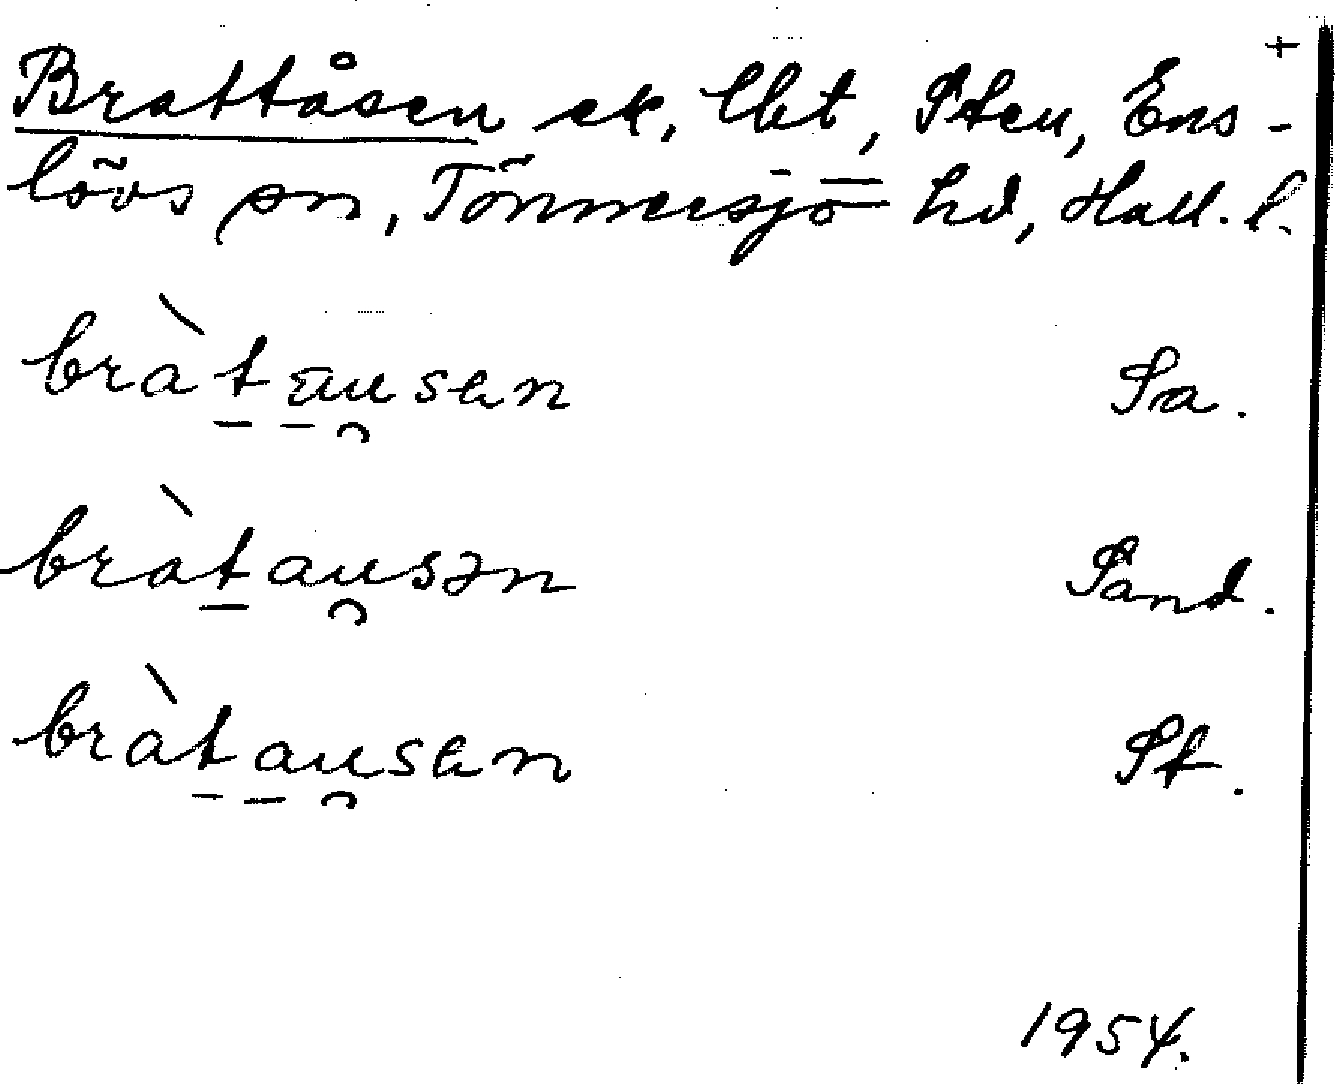 +
Brattåsen ek, lbt, Sten, Ens-
lövs sn, Tönnersjö hd, Hall. l.
bràt̠a̠u̯sen Sa.
bràt̠au̯sən Sand.
bràt̠a̠u̯sen St.
1954.